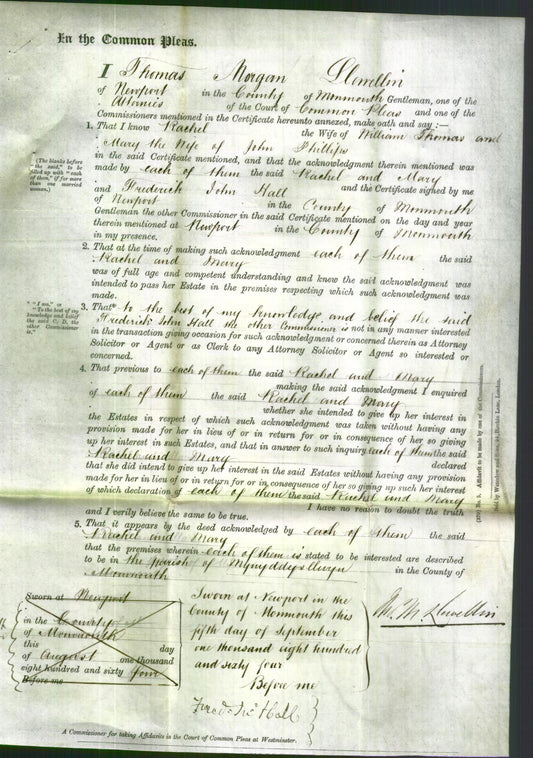 In the Common Pleas.
I Thomas Morgan Llewellin
of Newport in the County of Monmouth Gentleman, one of the
Attornies of the Court of Common Pleas and one of the
Commissioners mentioned in the Certificate hereunto annexed, make oath and say:—
1. That I know Rachel the Wife of William Thomas and
Mary the Wife of John Phillips
in the said Certificate mentioned, and that the acknowledgment therein mentioned was
made by each of them the said Rachel and Mary
and the Certificate signed by me
and Frederick John Hall
of Newport in the County of Monmouth
Gentleman the other Commissioner in the said Certificate mentioned on the day and year
therein mentioned at Newport in the County of Monmouth
in my presence.
(The blanks before
"the said," to be
filled up with "each
of them," if for more
than one married
woman.)
2. That at the time of making such acknowledgment each of them the said
Rachel and Mary
was of full age and competent understanding and knew the said acknowledgment was
intended to pass her Estate in the premises respecting which such acknowledgment was
made.
* "I am," or
"To the best of my
knowledge and belief
the said C. D. the
other Commissioner
is."
3. That* to the best of my knowledge and belief the said
Frederick John Hall the other Commissioner is not in any manner interested
in the transaction giving occasion for such acknowledgment or concerned therein as Attorney
Solicitor or Agent or as Clerk to any Attorney Solicitor or Agent so interested or
concerned.
4. That previous to each of them the said Rachel and Mary
making the said acknowledgment I enquired
of each of them the said Rachel and Mary
whether she intended to give up her interest in
the Estates in respect of which such acknowledgment was taken without having any
provision made for her in lieu of or in return for or in consequence of her so giving
up her interest in such Estates, and that in answer to such inquiry each of them the said
Rachel and Mary declared
that she did intend to give up her interest in the said Estates without having any provision
made for her in lieu of or in return for or in consequence of her so giving up such her interest
of which declaration of each of them the said Rachel and Mary
I have no reason to doubt the truth
and I verily believe the same to be true.
5. That it appears by the deed acknowledged by each of them the said
Rachel and Mary
that the premises wherein each of them is stated to be interested are described
to be in the parish of Mynyddyslwyn in the County of
Monmouth
Sworn at Newport
in the County
of Monmouth
this day
of August one thousand
eight hundred and sixty four
Before me
Sworn at Newport in the
County of Monmouth this
fifth day of September
one thousand eight hundred
and sixty four
Before me
Fred Jno Hall
T. M. Llewellin
A Commissioner for taking Affidavits in the Court of Common Pleas at Westminster.
Affidavit to be made by one of the Commissioners.